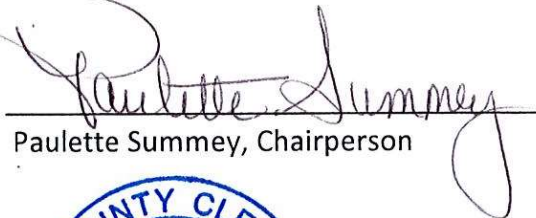 Paulette Summey
Paulette Summey, Chairperson
UNTY CLE